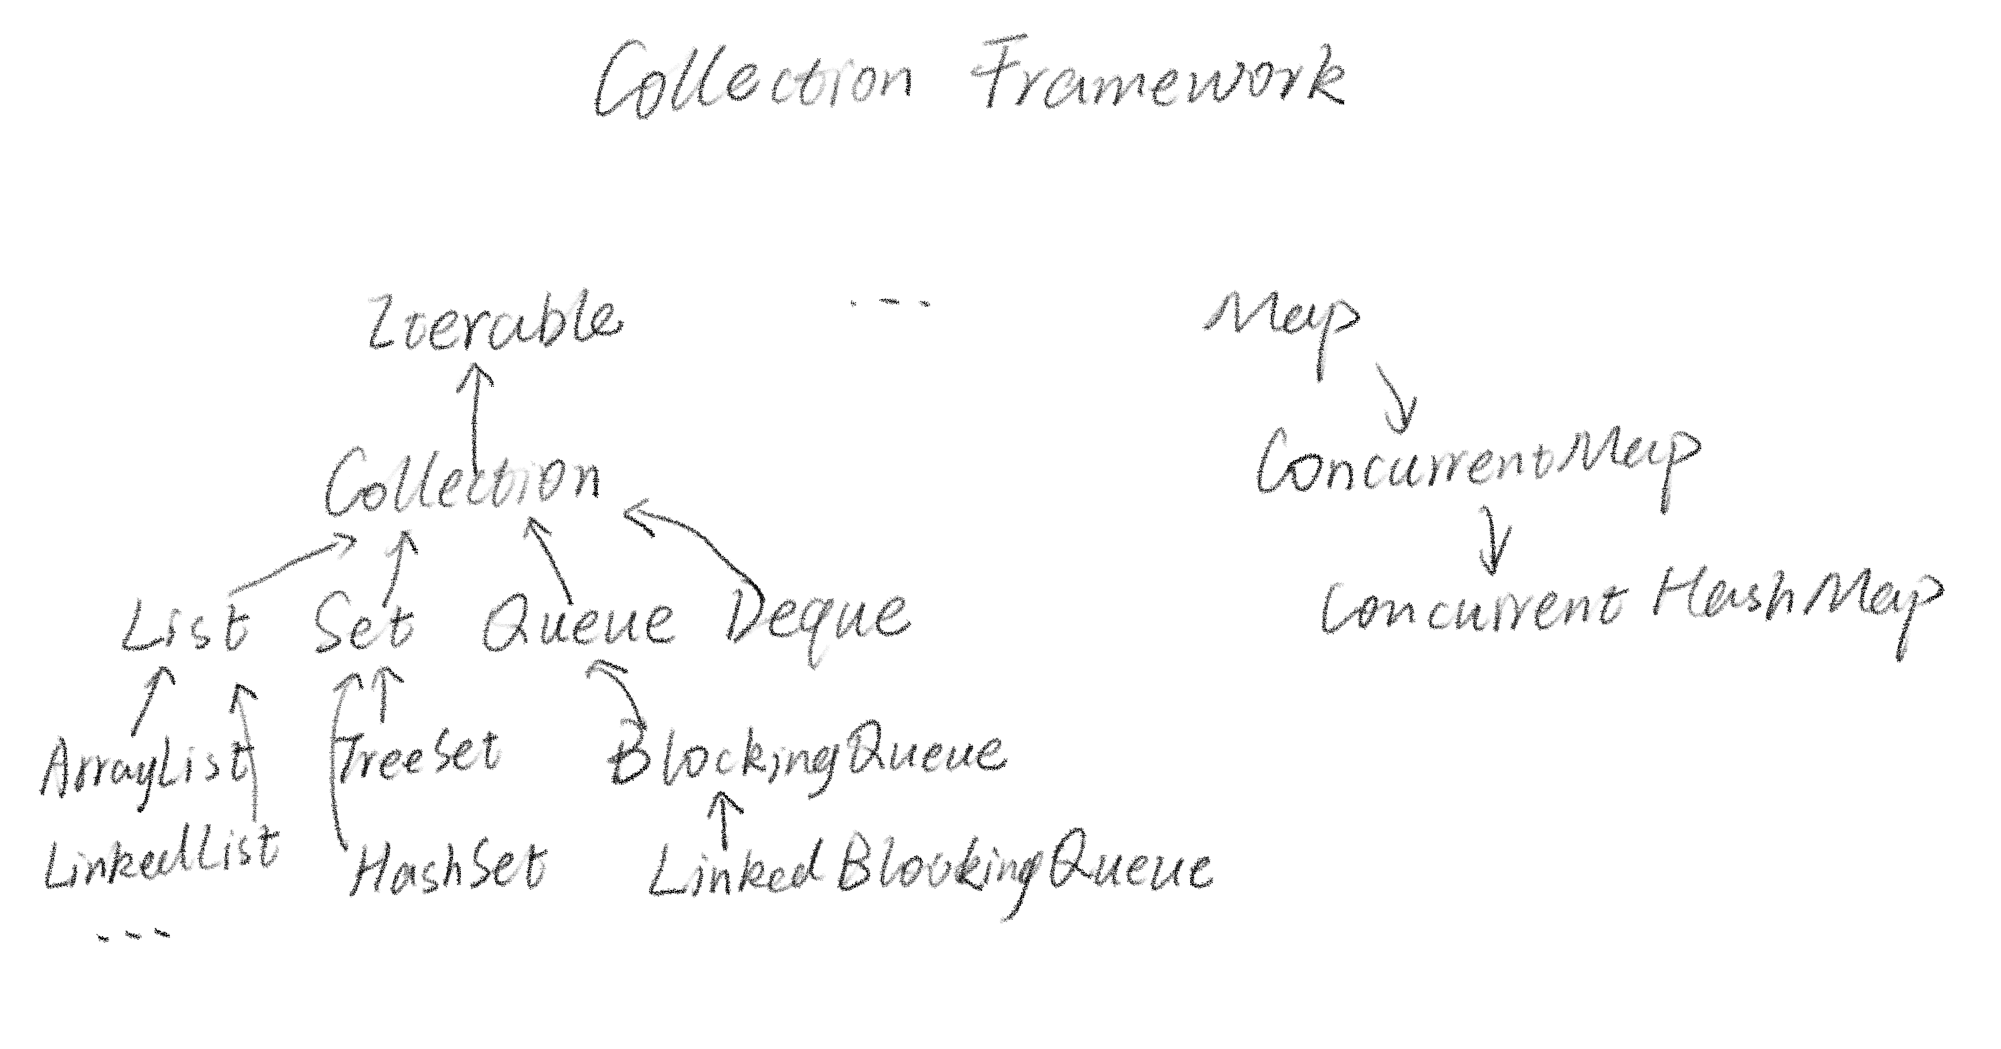 Collection Framework
Iterable --- Map
Collection ConcurrentMap
List Set Queue Deque ConcurrentHashMap
ArrayList TreeSet BlockingQueue
LinkedList HashSet LinkedBlockingQueue
---